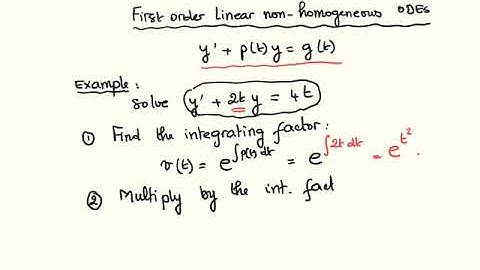 First order Linear non-homogeneous ODEs
y' + p(t) y = g(t)
Example:
Solve y' + 2t y = 4t
① Find the integrating factor:
v(t) = e^∫p(t)dt = e^∫2t dt = e^t².
② Multiply by the int. fact